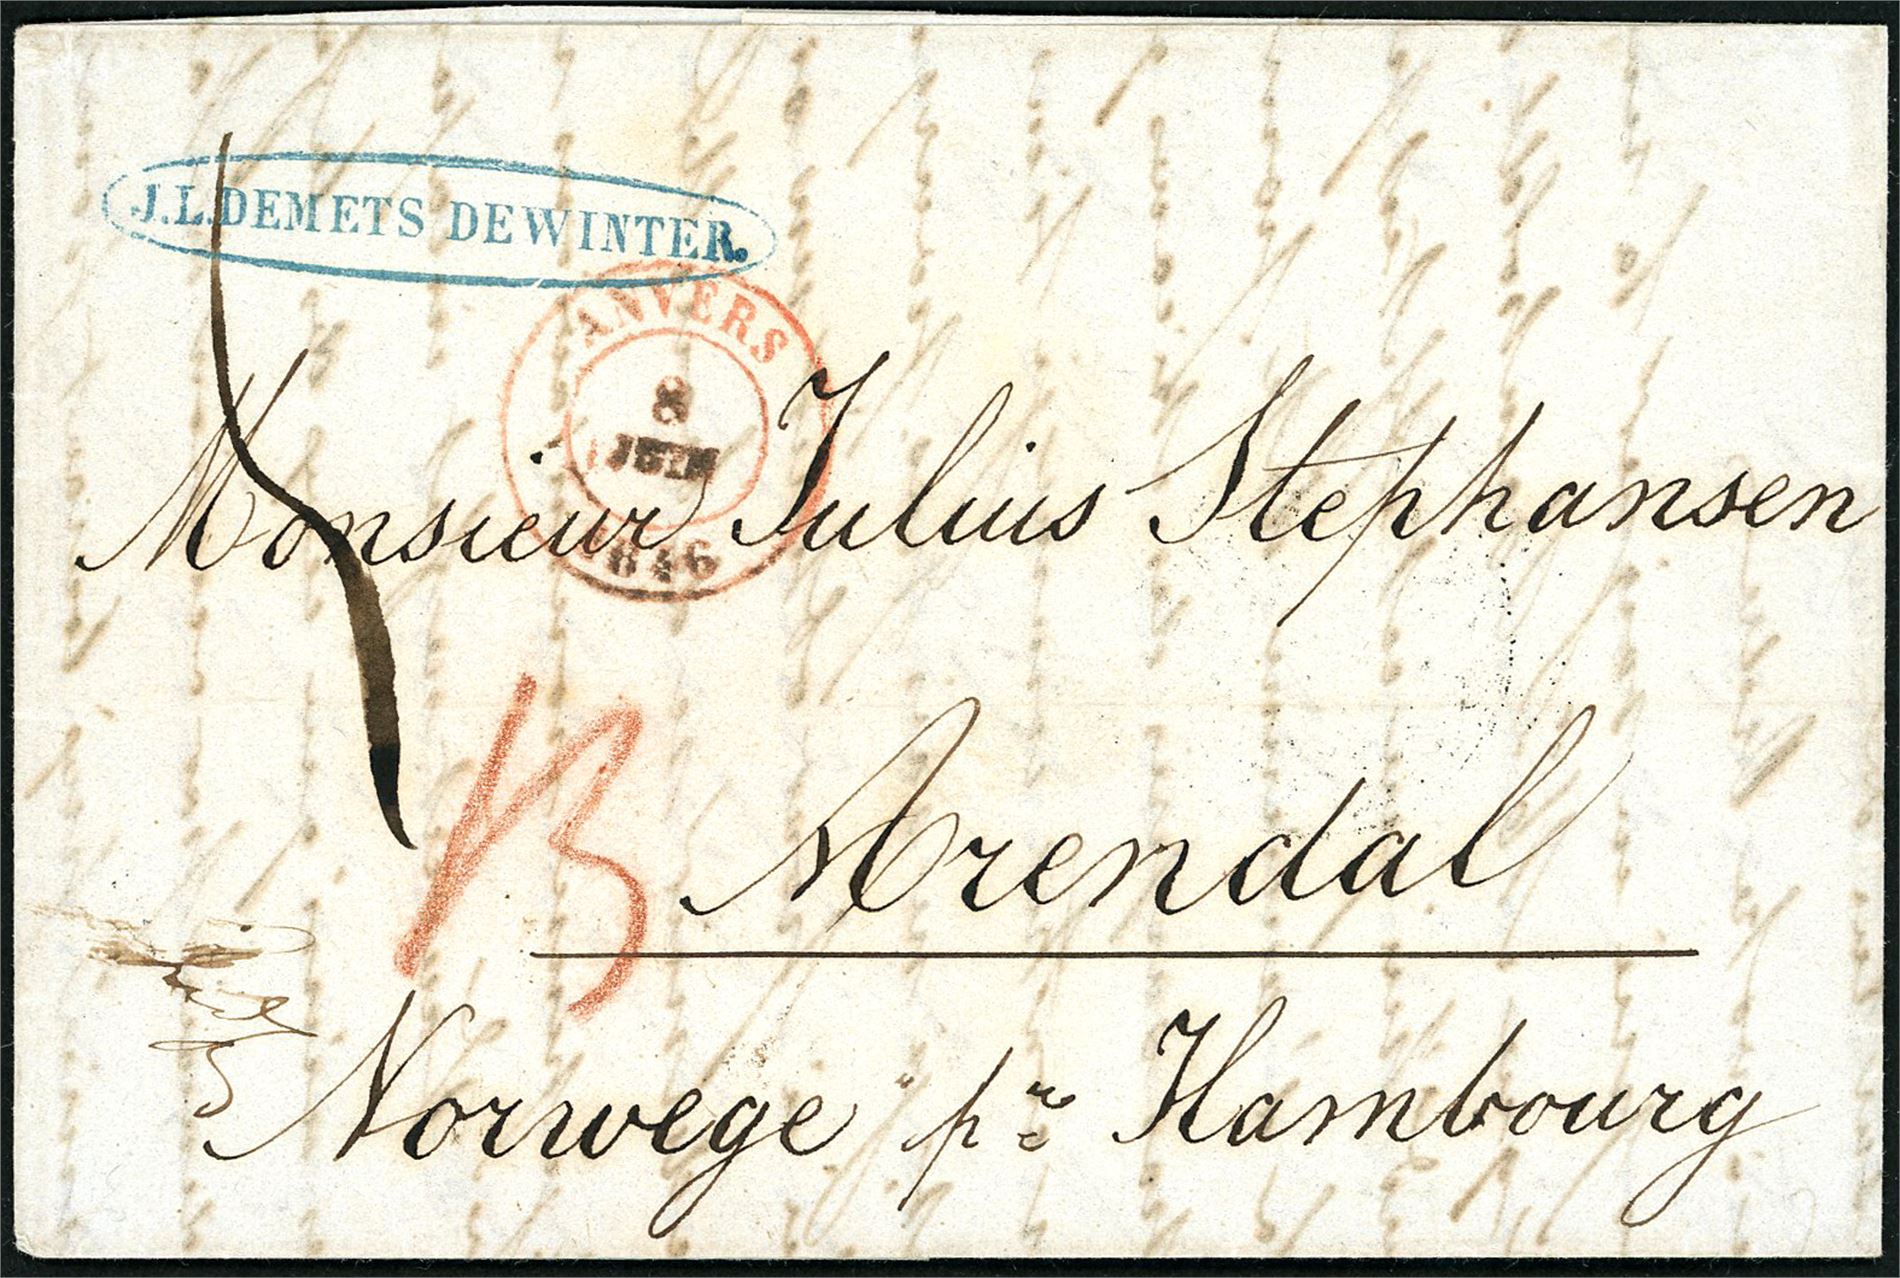 J.L.DEMETS DEWINTER.
ANVERS
8
JUIN
1846
Monsieur Julius Stephansen
Arendal
Norwege pr Hambourg